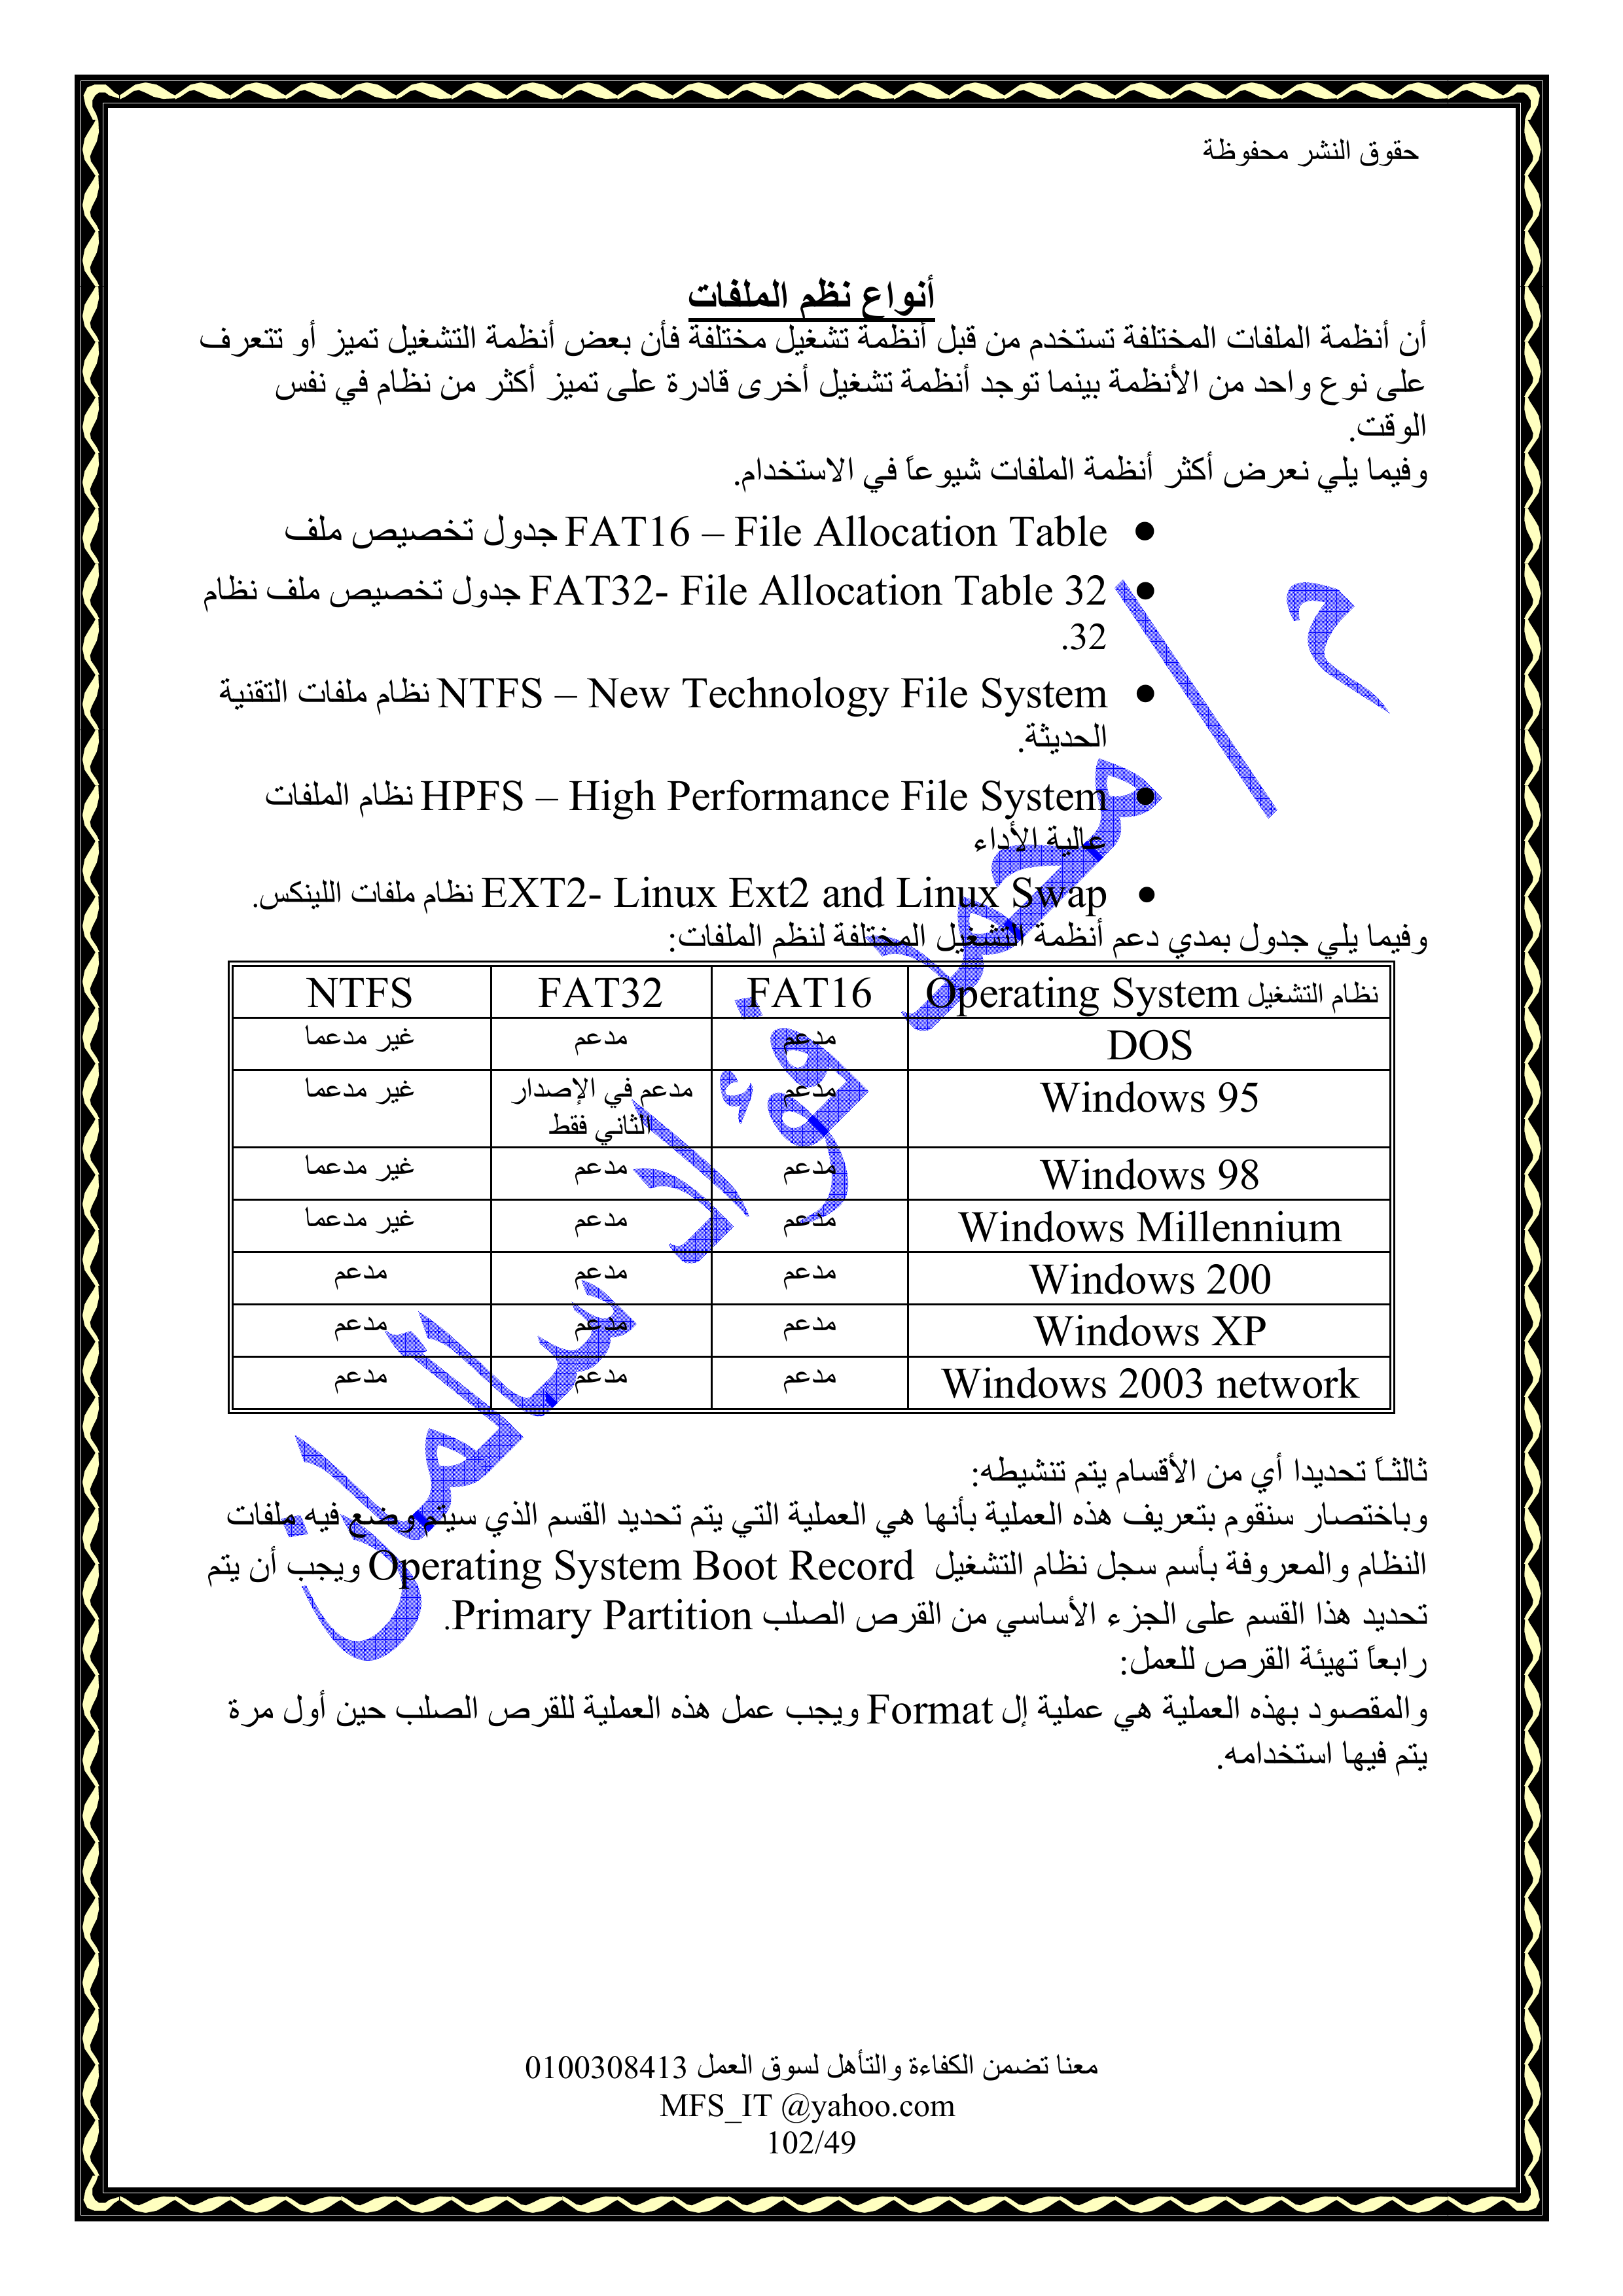 حقوق النشر محفوظة
أنواع نظم الملفات
أن أنظمة الملفات المختلفة تستخدم من قبل أنظمة تشغيل مختلفة فأن بعض أنظمة التشغيل تميز أو تتعرف
على نوع واحد من الأنظمة بينما توجد أنظمة تشغيل أخرى قادرة على تميز أكثر من نظام في نفس
الوقت.
وفيما يلي نعرض أكثر أنظمة الملفات شيوعاً في الاستخدام.
• FAT16 – File Allocation Table جدول تخصيص ملف
• FAT32- File Allocation Table 32 جدول تخصيص ملف نظام
32.
• NTFS – New Technology File System نظام ملفات التقنية
الحديثة.
• HPFS – High Performance File System نظام الملفات
عالية الأداء
• EXT2- Linux Ext2 and Linux Swap نظام ملفات اللينكس.
وفيما يلي جدول بمدي دعم أنظمة التشغيل المختلفة لنظم الملفات:
نظام التشغيل Operating System FAT16 FAT32 NTFS
DOS مدعم مدعم غير مدعما
Windows 95 مدعم مدعم في الإصدار غير مدعما
الثاني فقط
Windows 98 مدعم مدعم غير مدعما
Windows Millennium مدعم مدعم غير مدعما
Windows 200 مدعم مدعم مدعم
Windows XP مدعم مدعم مدعم
Windows 2003 network مدعم مدعم مدعم
ثالثاً تحديدا أي من الأقسام يتم تنشيطه:
وباختصار سنقوم بتعريف هذه العملية بأنها هي العملية التي يتم تحديد القسم الذي سيتم وضع فيه ملفات
النظام والمعروفة بأسم سجل نظام التشغيل Operating System Boot Record ويجب أن يتم
تحديد هذا القسم على الجزء الأساسي من القرص الصلب Primary Partition.
رابعاً تهيئة القرص للعمل:
والمقصود بهذه العملية هي عملية إل Format ويجب عمل هذه العملية للقرص الصلب حين أول مرة
يتم فيها استخدامه.
م / محمد فؤاد سالمان
معنا تضمن الكفاءة والتأهل لسوق العمل 0100308413
MFS_IT @yahoo.com
102/49